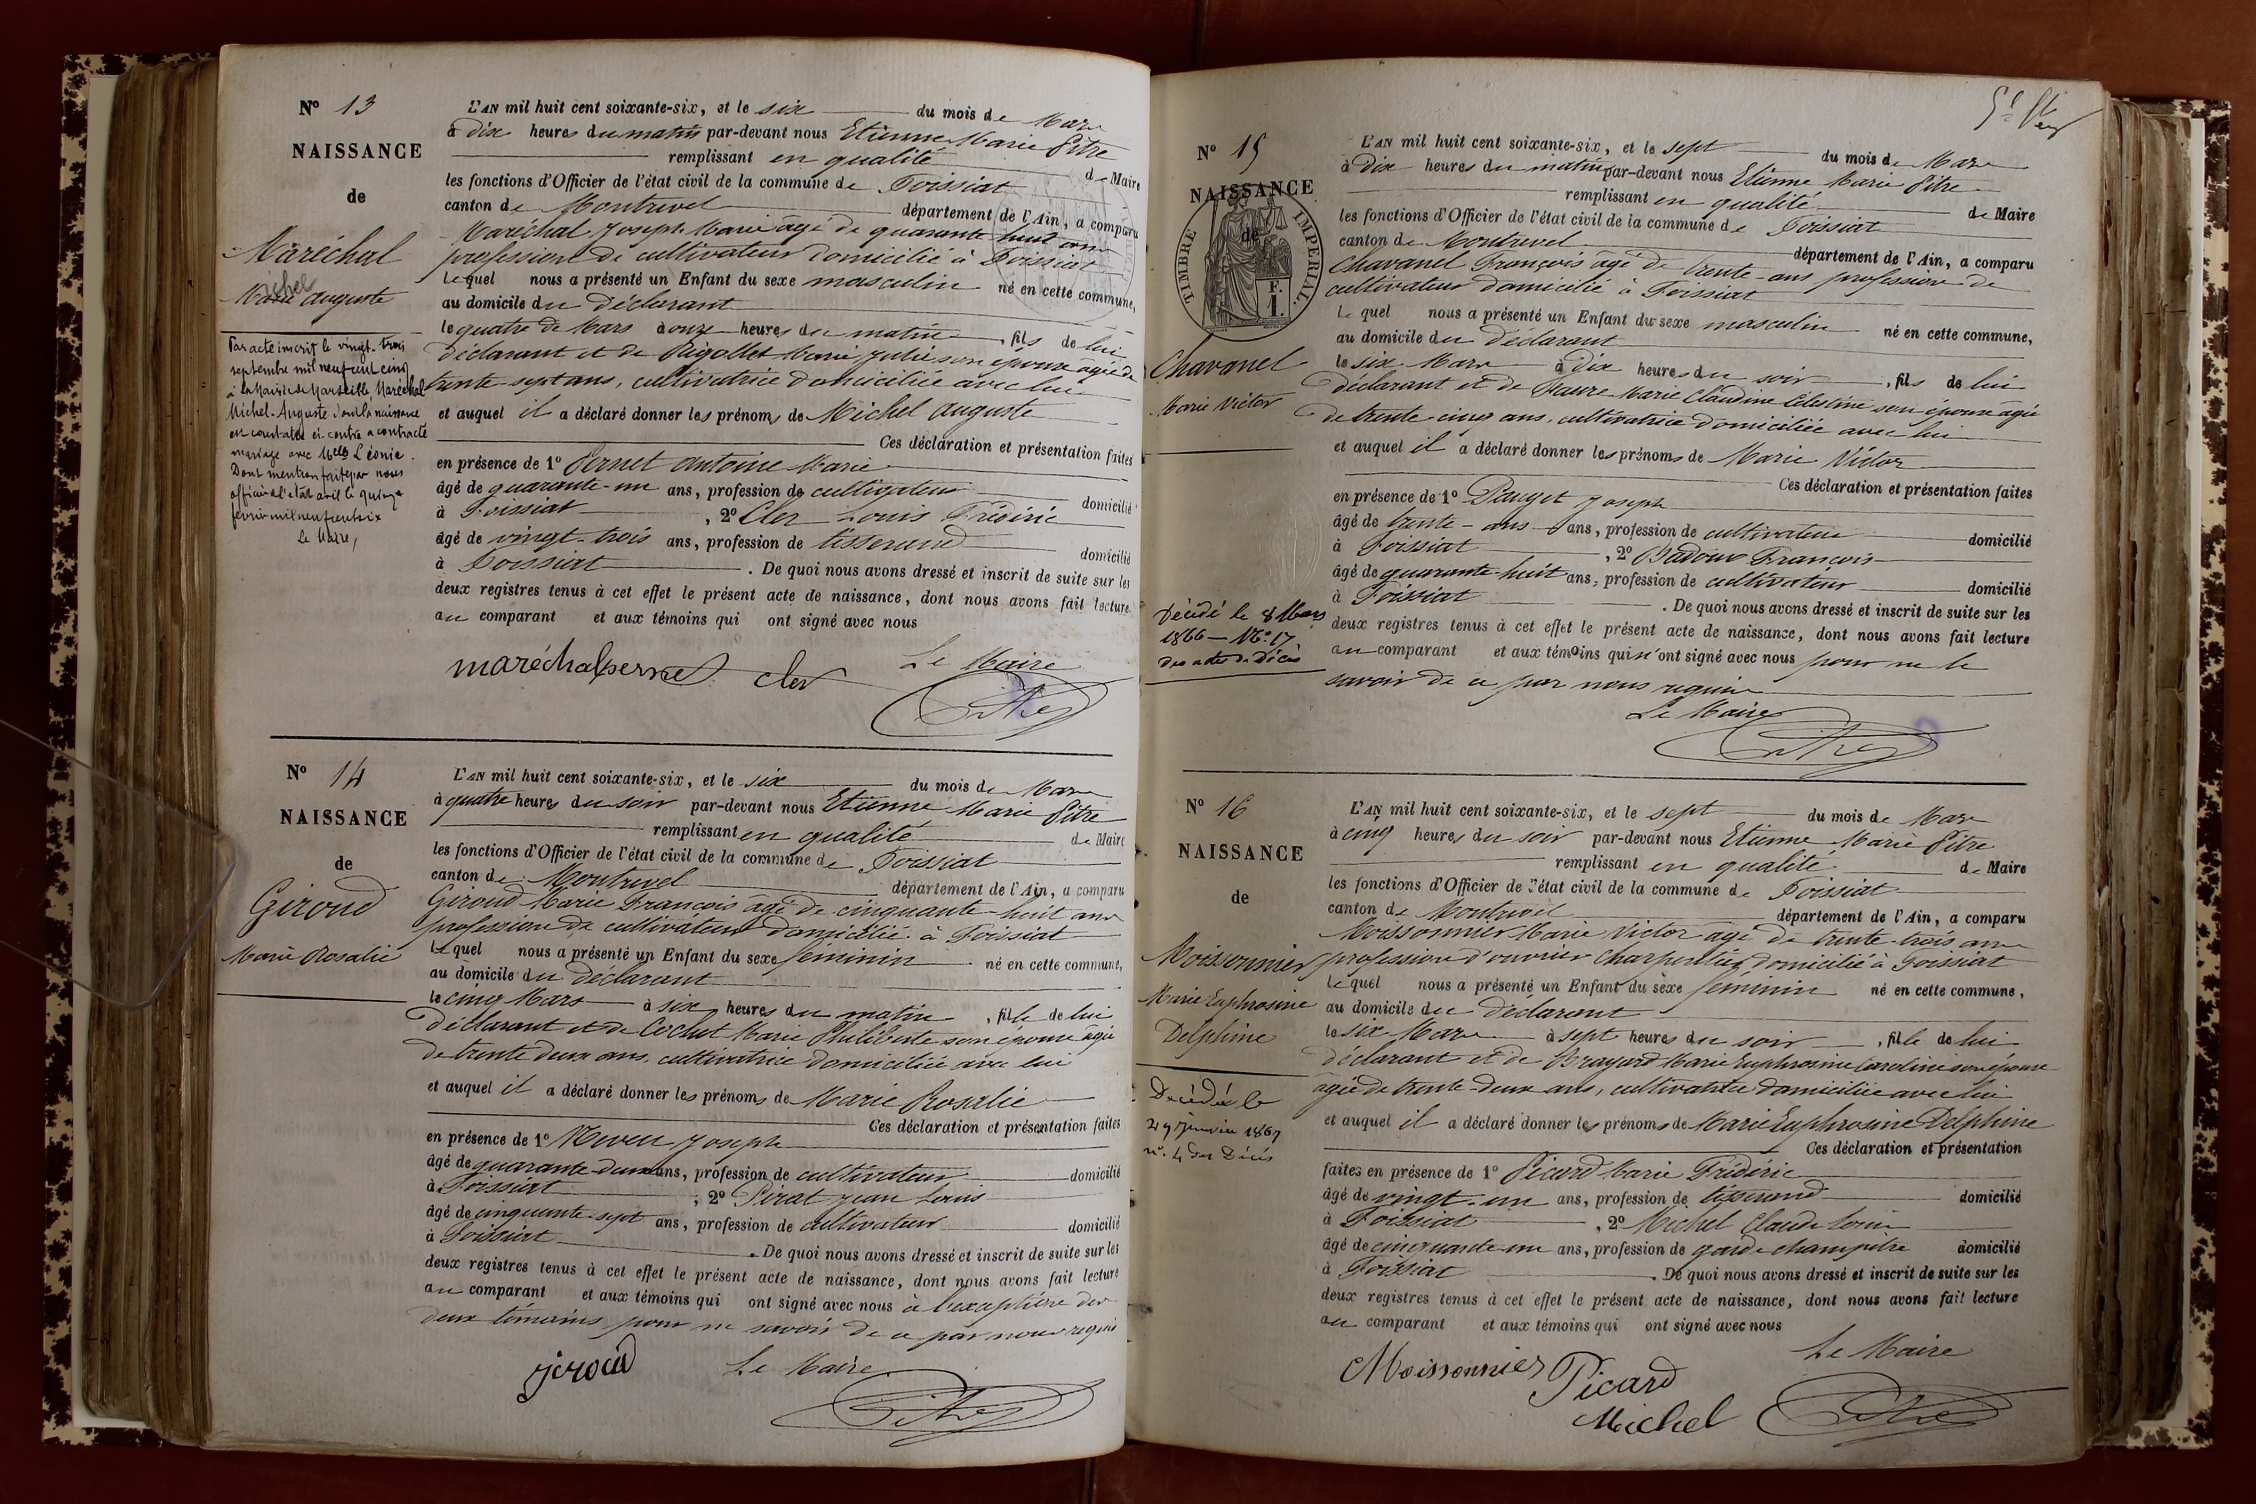 Nº 13
NAISSANCE
de
Maréchal
Michel
Marie Auguste
Par acte inscrit le vingt-trois
septembre mil neuf cent cinq
à la Mairie de Marseille, Maréchal
Michel-Auguste dont la naissance
est constatée ci-contre a contracté
mariage avec Melle Léonie.
Dont mention faite par nous
officier de l'état civil le quinze
février mil neuf cent six
Le Maire,
L'AN mil huit cent soixante-six, et le six du mois de Mars
à dix heures du matin par-devant nous Etienne Marie Pitre
remplissant en qualité de Maire
les fonctions d'Officier de l'état civil de la commune de Foissiat
canton de Montrevel département de l'Ain, a comparu
Maréchal Joseph Marie âgé de quarante huit ans
profession de cultivateur domicilié à Foissiat
Lequel nous a présenté un Enfant du sexe masculin né en cette commune,
au domicile du déclarant
le quatre de Mars à onze heures du matin, fils de lui
déclarant et de Rigollet Marie Julie son épouse âgée de
trente-sept ans, cultivatrice domiciliée avec lui
et auquel il a déclaré donner les prénoms de Michel Auguste
Ces déclaration et présentation faites
en présence de 1º Pernet Antoine Marie
âgé de quarante-un ans, profession de cultivateur domicilié
à Foissiat, 2º Cler Louis Frédéric
âgé de vingt-trois ans, profession de tisserand domicilié
à Foissiat. De quoi nous avons dressé et inscrit de suite sur les
deux registres tenus à cet effet le présent acte de naissance, dont nous avons fait lecture
au comparant et aux témoins qui ont signé avec nous
Le Maire
maréchal pernet cler Pitre
Nº 14
NAISSANCE
de
Giroud
Marie Rosalie
L'AN mil huit cent soixante-six, et le six du mois de Mars
à quatre heures du soir par-devant nous Etienne Marie Pitre
remplissant en qualité de Maire
les fonctions d'Officier de l'état civil de la commune de Foissiat
canton de Montrevel département de l'Ain, a comparu
Giroud Marie François âgé de cinquante-huit ans
profession de cultivateur domicilié à Foissiat
Lequel nous a présenté un Enfant du sexe féminin né en cette commune,
au domicile du déclarant
le cinq Mars à six heures du matin, fille de lui
déclarant et de Cochet Marie Philiberte son épouse âgée
de trente deux ans, cultivatrice domiciliée avec lui
et auquel il a déclaré donner les prénoms de Marie Rosalie
Ces déclaration et présentation faites
en présence de 1º Joseph
âgé de quarante-deux ans, profession de cultivateur domicilié
à Foissiat, 2º Pirat Jean Louis
âgé de cinquante-sept ans, profession de cultivateur domicilié
à Foissiat. De quoi nous avons dressé et inscrit de suite sur les
deux registres tenus à cet effet le présent acte de naissance, dont nous avons fait lecture
au comparant et aux témoins qui ont signé avec nous à l'exception des
deux témoins pour ne savoir de ce par nous requis
giroud Le Maire
Pitre
Nº 15
NAISSANCE
de
TIMBRE IMPÉRIAL.
F.
1.
Chavanel
Marie Victor
Décédé le 8 Mars
1866 — Nº 17
des actes de Décès
L'AN mil huit cent soixante-six, et le sept du mois de Mars
à dix heures du matin par-devant nous Etienne Marie Pitre
remplissant en qualité de Maire
les fonctions d'Officier de l'état civil de la commune de Foissiat
canton de Montrevel département de l'Ain, a comparu
Chavanel François âgé de trente-ans profession de
cultivateur domicilié à Foissiat
Lequel nous a présenté un Enfant du sexe masculin né en cette commune,
au domicile du déclarant
le six Mars à dix heures du soir, fils de lui
déclarant et de Faure Marie Claudine Célestine son épouse âgée
de trente-cinq ans, cultivatrice domiciliée avec lui
et auquel il a déclaré donner les prénoms de Marie Victor
Ces déclaration et présentation faites
en présence de 1º Pauget Joseph
âgé de trente-ans ans, profession de cultivateur domicilié
à Foissiat, 2º Badoux François
âgé de quarante-huit ans, profession de cultivateur domicilié
à Foissiat. De quoi nous avons dressé et inscrit de suite sur les
deux registres tenus à cet effet le présent acte de naissance, dont nous avons fait lecture
au comparant et aux témoins qui n'ont signé avec nous pour ne le
savoir de ce par nous requis
Le Maire
Pitre
Nº 16
NAISSANCE
de
Moissonnier
Marie Euphrosine
Delphine
Décédée le
29 Janvier 1867
nº 4 des Décès
L'AN mil huit cent soixante-six, et le sept du mois de Mars
à cinq heures du soir par-devant nous Etienne Marie Pitre
remplissant en qualité de Maire
les fonctions d'Officier de l'état civil de la commune de Foissiat
canton de Montrevel département de l'Ain, a comparu
Moissonnier Marie Victor âgé de trente-trois ans
profession d'ouvrier charpentier domicilié à Foissiat
Lequel nous a présenté un Enfant du sexe féminin né en cette commune,
au domicile du déclarant
le six Mars à sept heures du soir, fille de lui
déclarant et de Brayard Marie Euphrosine Caroline son épouse
âgée de trente-deux ans, cultivatrice domiciliée avec lui
et auquel il a déclaré donner les prénoms de Marie Euphrosine Delphine
Ces déclaration et présentation
faites en présence de 1º Picard Marie Frédéric
âgé de vingt-un ans, profession de tisserand domicilié
à Foissiat, 2º Michel Claude Louis
âgé de cinquante-un ans, profession de garde champêtre domicilié
à Foissiat. De quoi nous avons dressé et inscrit de suite sur les
deux registres tenus à cet effet le présent acte de naissance, dont nous avons fait lecture
au comparant et aux témoins qui ont signé avec nous
Le Maire
Moissonnier Picard
Michel Pitre